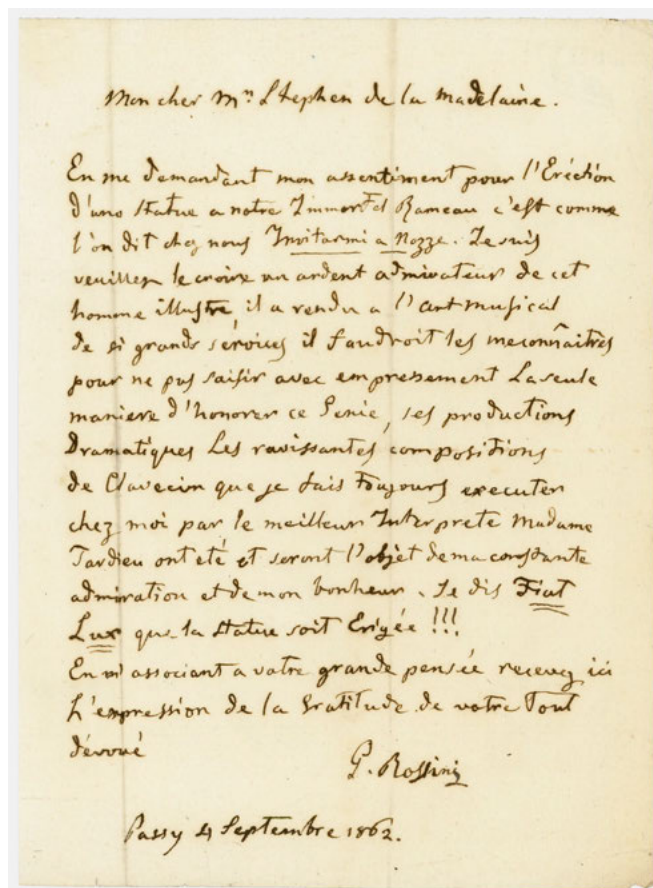 Mon cher Mr. Stephen de la Madelaine.
En me demandant mon assentiment pour l'Eréction
d'une Statue a notre Immortel Rameau c'est comme
l'on dit chez nous Invitarmi a Nozze. Je suis
veuillez le croire un ardent admirateur de cet
homme illustre il a rendu a l'art musical
de si grands sérvices il faudroit les meconnaitres
pour ne pas saisir avec empressement La seule
maniere d'honorer ce Genie, ses productions
Dramatiques Les ravissantes compositions
de Clavecin que je fais toujours executer
chez moi par le meilleur Interprete Madame
Tardieu ont été et seront l'objet de ma constante
admiration et de mon bonheur. Je dis Fiat
Lux que la Statue soit Erigée !!!
En m'associant a votre grande pensée recevez ici
L'expression de la Gratitude de votre Tout
dévoué
G. Rossini
Passy 4 Septembre 1862.